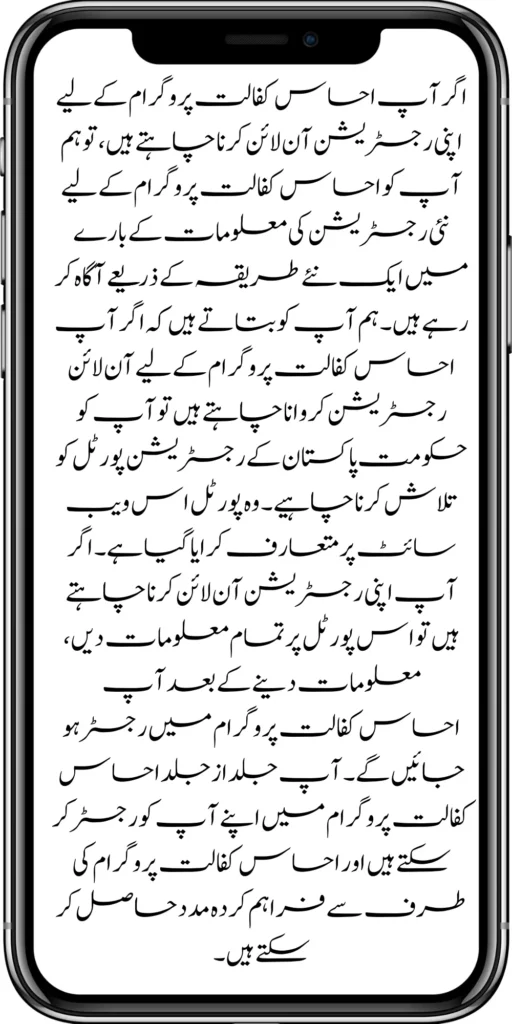 اگر آپ احساس کفالت پروگرام کے لیے
اپنی رجسٹریشن آن لائن کرنا چاہتے ہیں، تو ہم
آپ کو احساس کفالت پروگرام کے لیے
نئی رجسٹریشن کی معلومات کے بارے
میں ایک نئے طریقہ کے ذریعے آگاہ کر
رہے ہیں۔ ہم آپ کو بتاتے ہیں کہ اگر آپ
احساس کفالت پروگرام کے لیے آن لائن
رجسٹریشن کروانا چاہتے ہیں تو آپ کو
حکومت پاکستان کے رجسٹریشن پورٹل کو
تلاش کرنا چاہیے۔ وہ پورٹل اس ویب
سائٹ پر متعارف کرایا گیا ہے۔ اگر
آپ اپنی رجسٹریشن آن لائن کرنا چاہتے
ہیں تو اس پورٹل پر تمام معلومات دیں،
معلومات دینے کے بعد آپ
احساس کفالت پروگرام میں رجسٹر ہو
جائیں گے۔ آپ جلد از جلد احساس
کفالت پروگرام میں اپنے آپ کو رجسٹر کر
سکتے ہیں اور احساس کفالت پروگرام کی
طرف سے فراہم کردہ مدد حاصل کر
سکتے ہیں۔